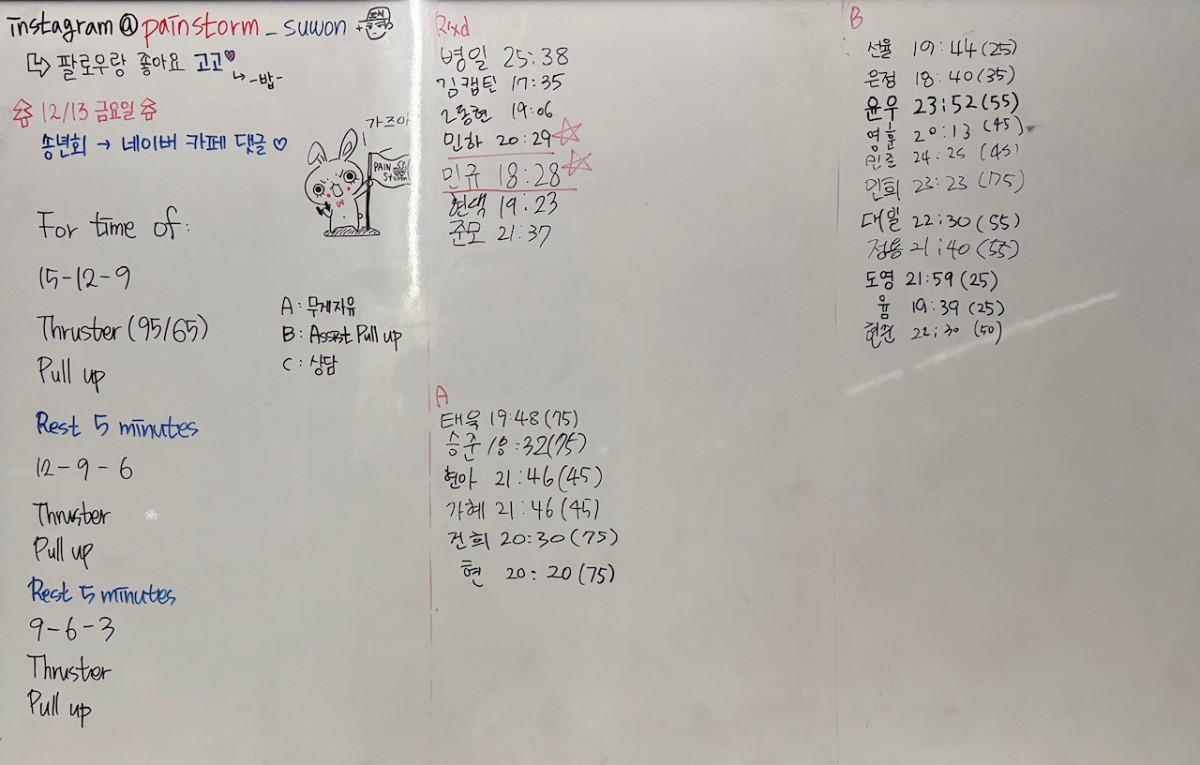 instagram @ painstorm_suwon +
↳ 팔로우랑 좋아요 고고♥
↳ -밥-
12/13 금요일
송년회 → 네이버 카페 댓글 ♡
가즈아
PAIN STORM
For time of:
15-12-9
Thruster (95/65)
Pull up
Rest 5 minutes
12-9-6
Thruster
Pull up
Rest 5 minutes
9-6-3
Thruster
Pull up
A: 무게자유
B: Assist Pull up
C: 상담
Rxd
병일 25:38
김캡틴 17:35
2동현 19:06
민하 20:29☆
민규 18:28☆
현택 19:23
준모 21:37
A
태욱 19:48(75)
승준 18:32(75)
현아 21:46(45)
가혜 21:46(45)
건희 20:30(75)
현 20:20(75)
B
선율 19:44(25)
은정 18:40(35)
윤우 23:52(55)
영훈 20:13(45)
24:25(45)
민희 23:23(75)
대일 22:30(55)
정용 21:40(55)
도영 21:59(25)
윰 19:39(25)
22:30(50)